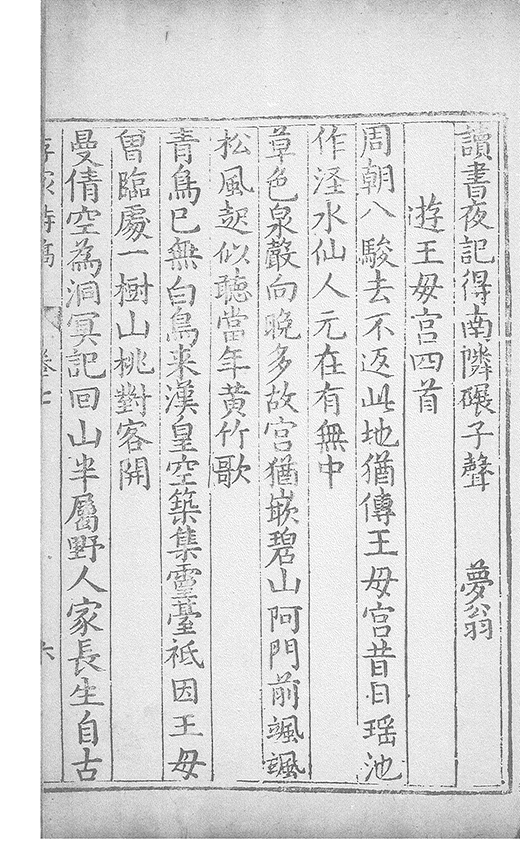 讀書夜記得南隣碾子聲　夢翁
遊王毋宫四首
周朝八駿去不返此地猶傳王毋宫昔日瑶池
作淫水仙人元在有無中
草色泉聲向晚多故宫猶嵌碧山阿門前颯颯
松風起似聽當年黄竹歌
青鳥已無白鳥来漢皇空築集靈臺祗因王毋
曾臨處一樹山桃對客開
曼倩空為洞冥記回山半屬野人家長生自古
卷十
六